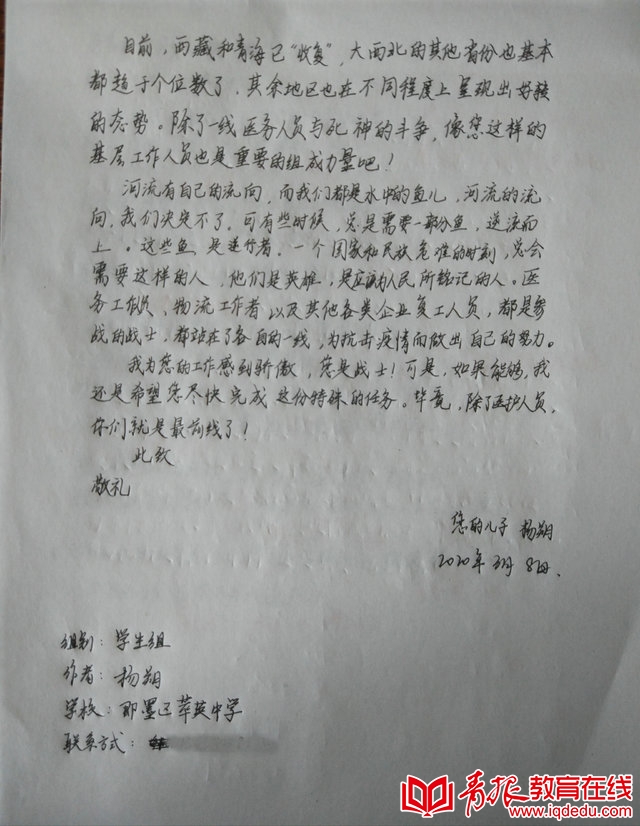 目前，西藏和青海已“收复”，大西北的其他省份也基本
都趋于个位数了，其余地区也在不同程度上呈现出好转
的态势。除了一线医务人员与死神的斗争，像您这样的
基层工作人员也是重要的组成力量吧！
河流有自己的流向，而我们都是水中的鱼儿，河流的流
向，我们决定不了。可有些时候，总是需要一部分鱼，逆流而
上。这些鱼是逆行者，一个国家和民族危难的时刻，总会
需要这样的人，他们是英雄，是应该为人民所铭记的人。医
务工作员、物流工作者以及其他各类企业复工人员，都是参
战的战士，都站在了各自的一线，为抗击疫情而做出自己的努力。
我为您的工作感到骄傲，您是战士！可是，如果能够，我
还是希望您尽快完成这份特殊的任务。毕竟，除了医护人员，
你们就是最前线了！
此致
敬礼
您的儿子 杨朔
2020年3月8日、
组别：学生组
作者：杨朔
学校：即墨区萃英中学
联系方式：
青报教育在线
www.iqdedu.com